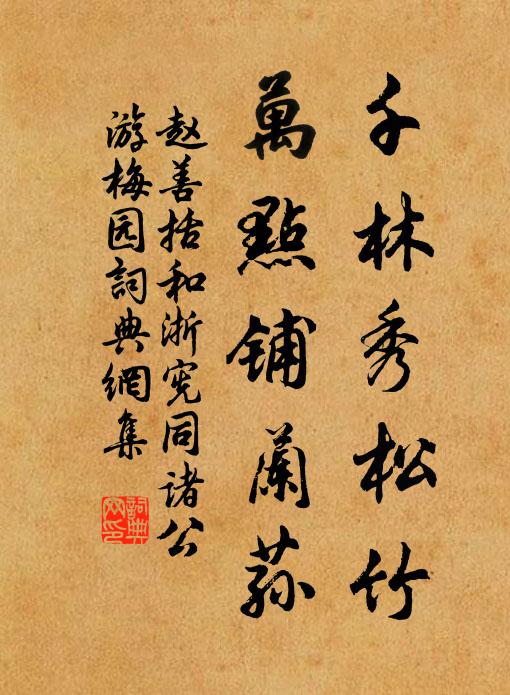 千林秀松竹
萬點铺蘭荪
赵善括和浙宪同诸公
游梅园詞典網集
詞典網印